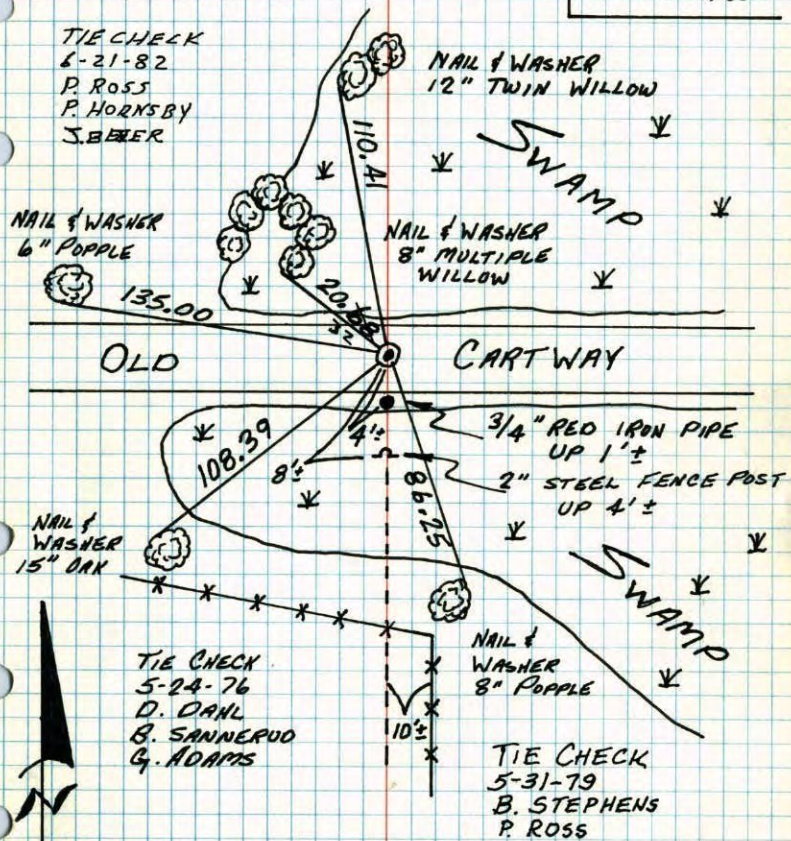 TIE CHECK
6-21-82
P. ROSS
P. HORNSBY
J. BEIER
NAIL & WASHER
12" TWIN WILLOW
SWAMP
110.41
NAIL & WASHER
6" POPPLE
NAIL & WASHER
8" MULTIPLE
WILLOW
135.00
20.68
32
OLD CARTWAY
3/4" RED IRON PIPE
UP 1'±
4'±
8'±
2" STEEL FENCE POST
UP 4'±
108.39
86.25
NAIL &
WASHER
15" OAK
SWAMP
NAIL &
WASHER
8" POPPLE
TIE CHECK
5-24-76
D. DAHL
B. SANNERUD
G. ADAMS
10'±
TIE CHECK
5-31-79
B. STEPHENS
P. ROSS